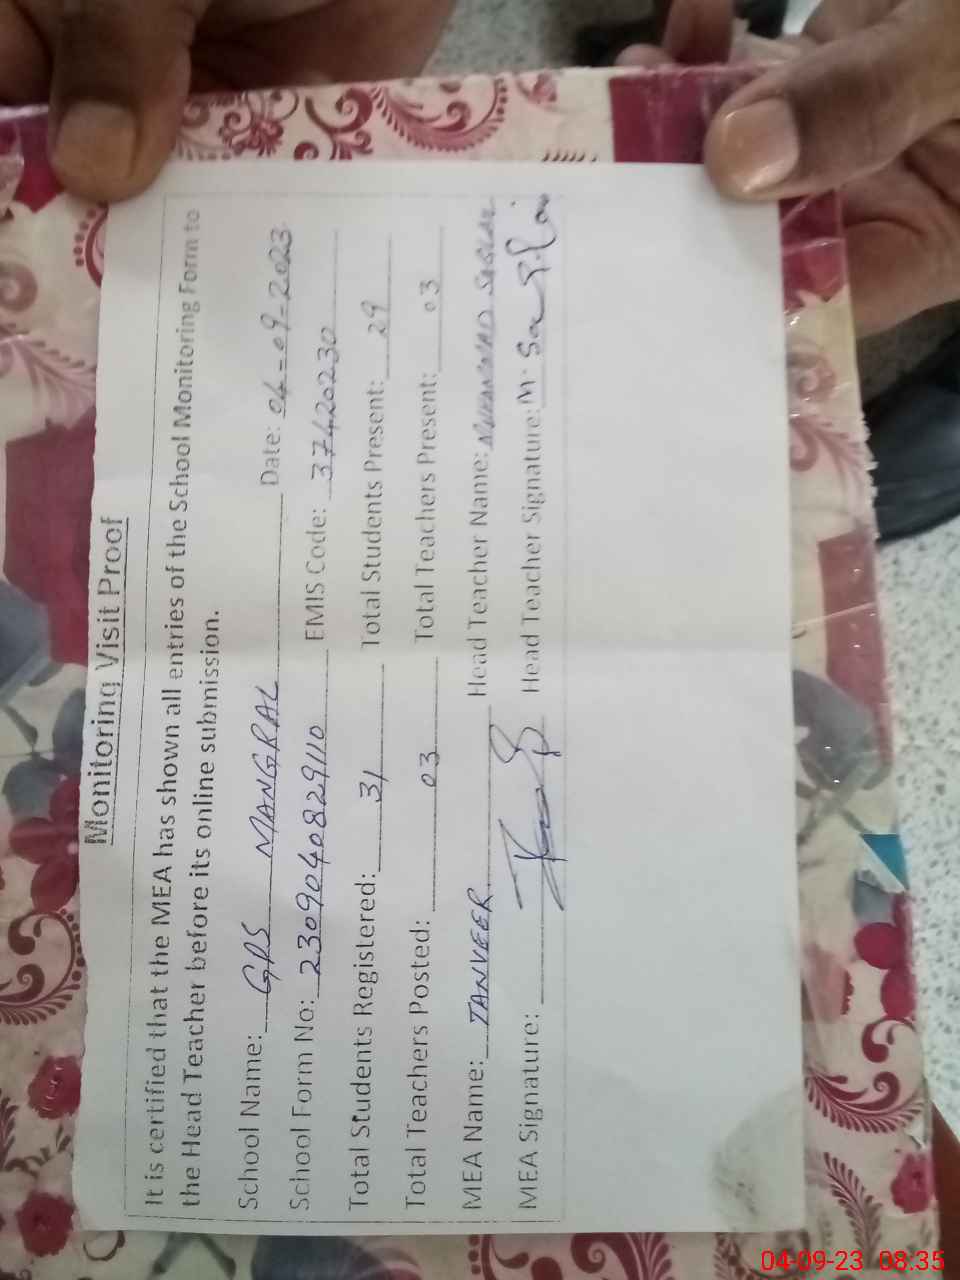 Monitoring Visit Proof
It is certified that the MEA has shown all entries of the School Monitoring Form to
the Head Teacher before its online submission.
School Name: GPS MANGRAL Date: 04-09-2023
School Form No: 2309040829110 EMIS Code: 37420230
Total Students Registered: 31 Total Students Present: 29
Total Teachers Posted: 03 Total Teachers Present: 03
MEA Name: TANVEER Head Teacher Name: MUHAMMAD
MEA Signature: Head Teacher Signature: M.
04-09-23 08:35